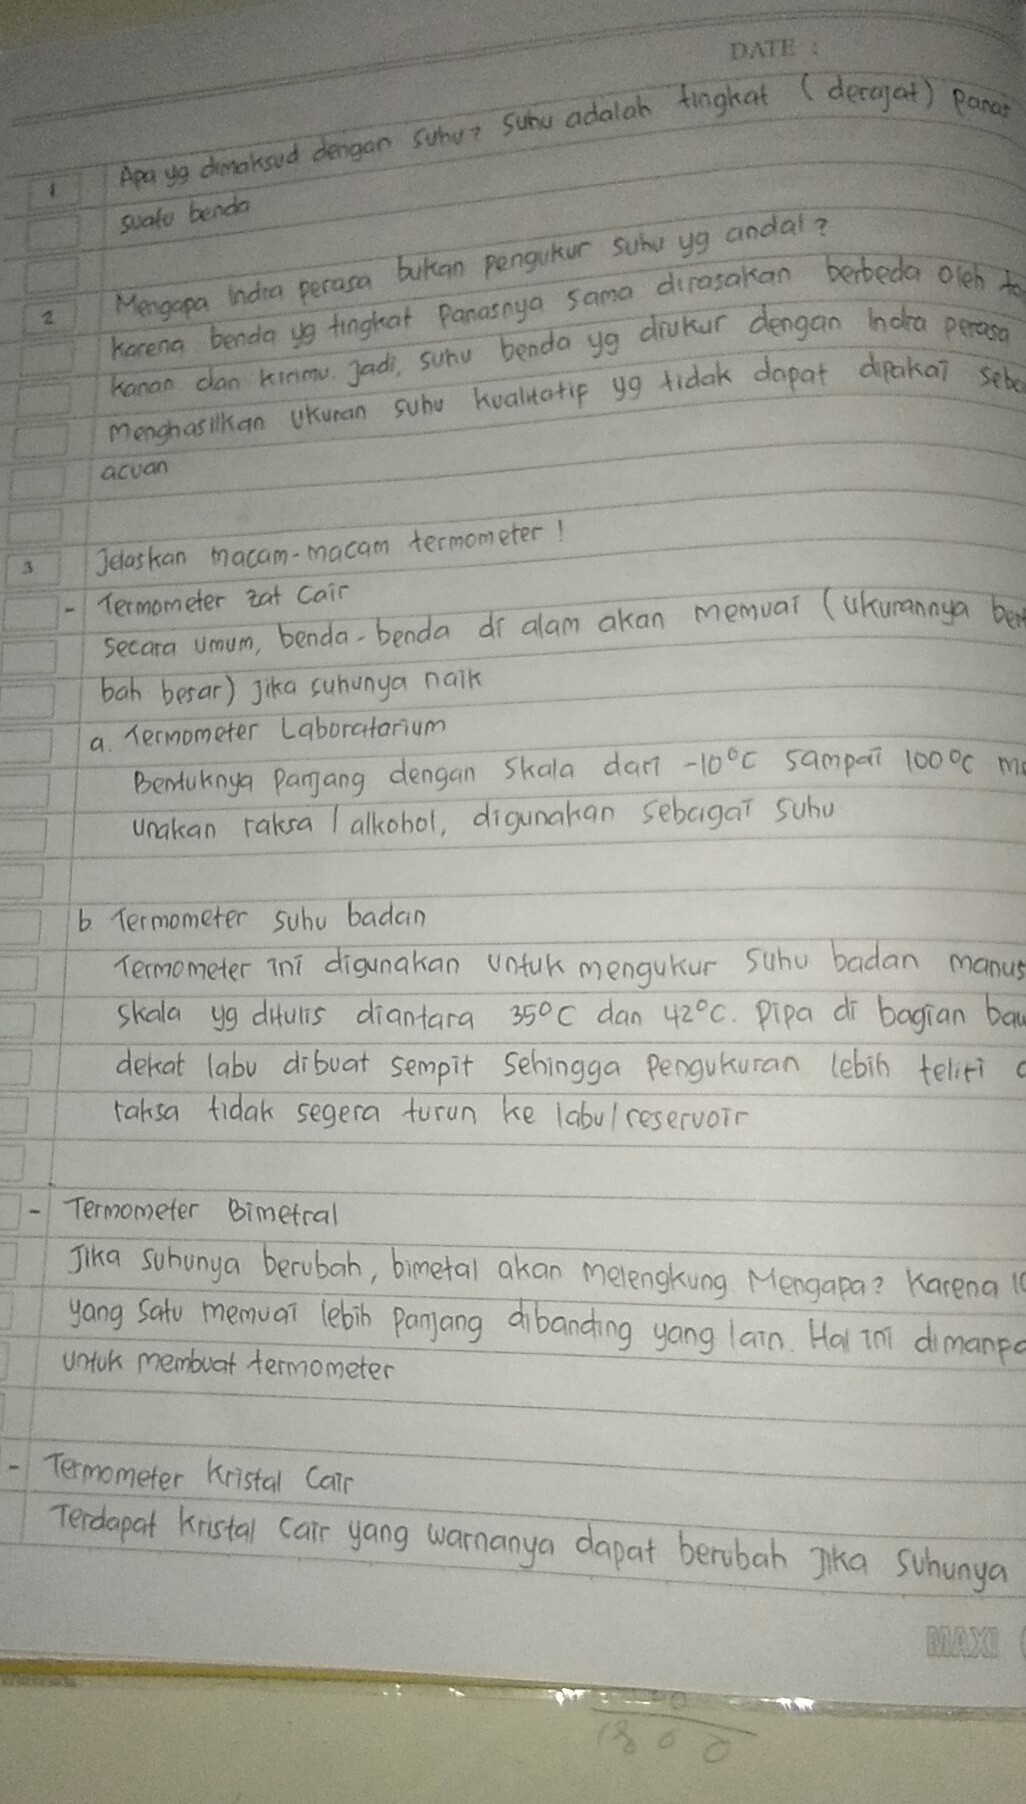 DATE :
1 Apa yg dimaksud dengan suhu? Suhu adalah tingkat (derajat) panas
suatu benda
2 Mengapa indra perasa bukan pengukur suhu yg andal?
karena benda yg tingkat panasnya sama dirasakan berbeda oleh
kanan dan kirimu. Jadi, suhu benda yg diukur dengan indra perasa
menghasilkan ukuran suhu kualitatif yg tidak dapat dipakai seba
acuan
3 Jelaskan macam-macam termometer!
- Termometer zat cair
secara umum, benda-benda di alam akan memuai (ukurannya ber
bah besar) jika suhunya naik
a. Termometer Laboratorium
Bentuknya panjang dengan skala dari -10°C sampai 100°C me
unakan raksa / alkohol, digunakan sebagai suhu
b Termometer suhu badan
Termometer ini digunakan untuk mengukur suhu badan manus
skala yg ditulis diantara 35°C dan 42°C. Pipa di bagian baw
dekat labu dibuat sempit sehingga pengukuran lebih teliti
raksa tidak segera turun ke labu/reservoir
- Termometer Bimetral
Jika suhunya berubah, bimetal akan melengkung. Mengapa? Karena
yang satu memuai lebih panjang dibanding yang lain. Hal ini dimanpa
untuk membuat termometer
- Termometer Kristal Cair
Terdapat kristal cair yang warnanya dapat berubah jika suhunya
MAXI